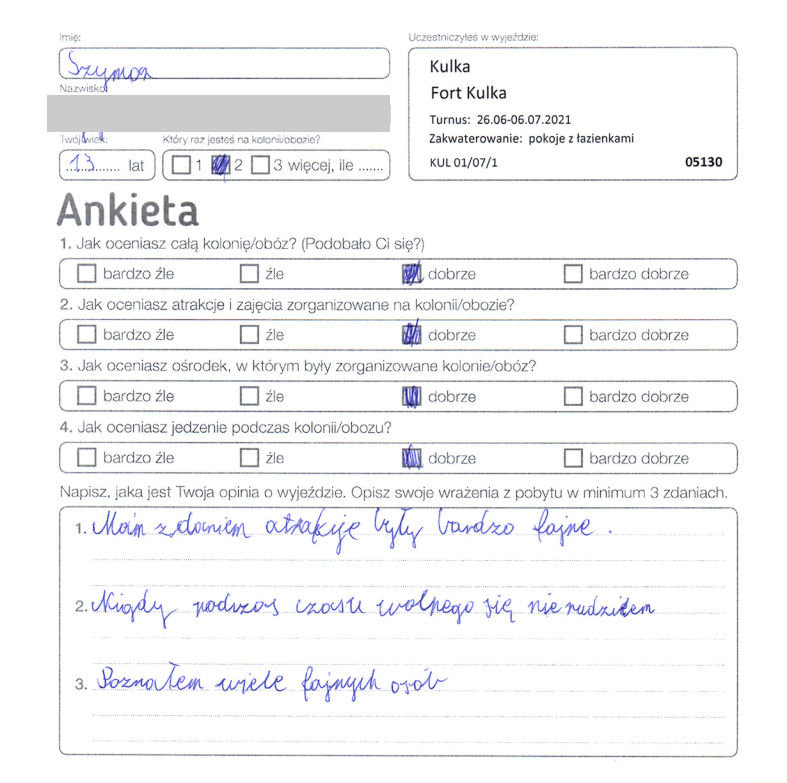 Imię:
Szymon
Nazwisko
Twój wiek:
13 lat
Który raz jesteś na kolonii/obozie?
1 2 3 więcej, ile .......
Uczestniczyłeś w wyjeździe:
Kulka
Fort Kulka
Turnus: 26.06-06.07.2021
Zakwaterowanie: pokoje z łazienkami
KUL 01/07/1 05130
Ankieta
1. Jak oceniasz całą kolonię/obóz? (Podobało Ci się?)
bardzo źle źle dobrze bardzo dobrze
2. Jak oceniasz atrakcje i zajęcia zorganizowane na kolonii/obozie?
bardzo źle źle dobrze bardzo dobrze
3. Jak oceniasz ośrodek, w którym były zorganizowane kolonie/obóz?
bardzo źle źle dobrze bardzo dobrze
4. Jak oceniasz jedzenie podczas kolonii/obozu?
bardzo źle źle dobrze bardzo dobrze
Napisz, jaka jest Twoja opinia o wyjeździe. Opisz swoje wrażenia z pobytu w minimum 3 zdaniach.
1. Moim zdaniem atrakcje były bardzo fajne .
2. Nigdy podczas czasu wolnego się nie nudziłem
3. Poznałem wiele fajnych osób